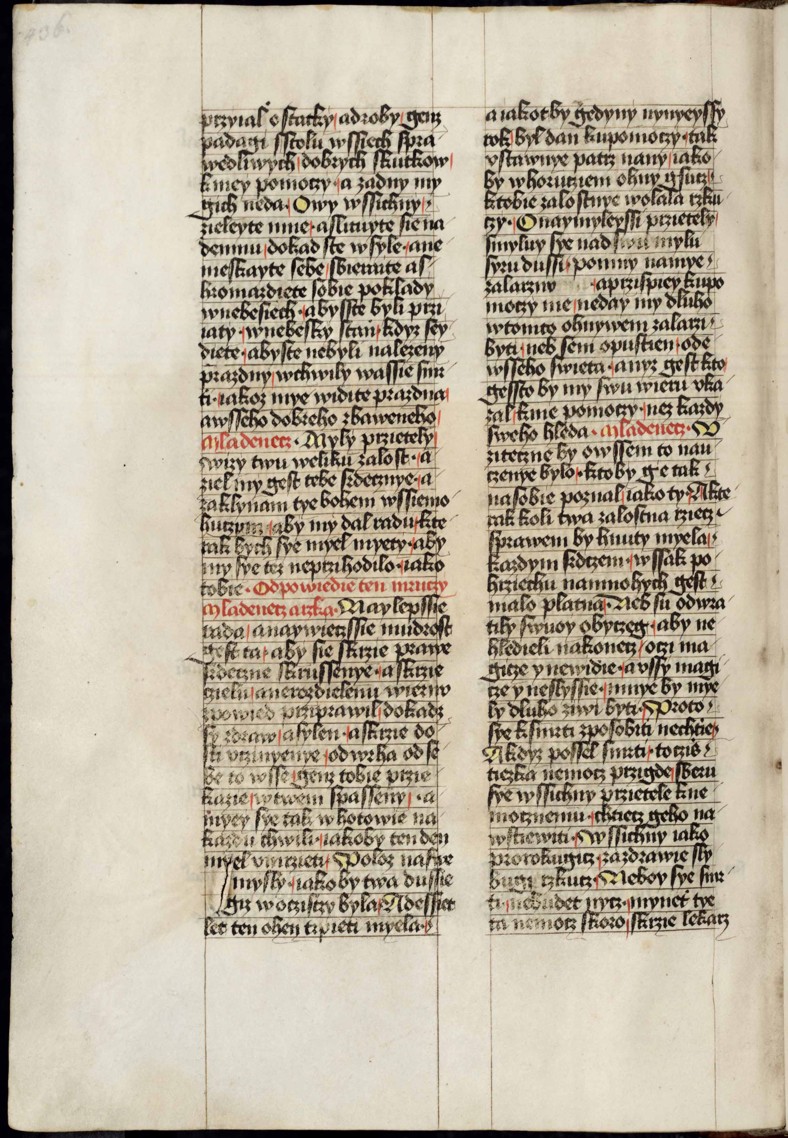 przyial o statky adroby genz
padagi sstolu wssiech spra
wedliwych dobrych skutkow
kmey pomoczy a zadny my
gich neda Owy wssichny
zieleyte mne aslituyte sie na
demnu dokad ste wsyle ane
meskayte sebe sbieraite as
hromazdiete sobie poklady
wnebesiech abysste byli przi
iaty wnebesky stan kdyz sey
diete abyste nebyli nalezeny
prazdny wchwily wassie smr
ti iakoz mye widite prazdna
awsseho dobreho zbaweneho
Mladenecz Myly przietely
wizy twu weliku zalost a
ziel my gest tebe srdecznye a
zaklynam tye bohem wssiemo
huczym aby my dal radu kte
rak bych sye myel myety aby
my sye tez neprzihodilo iako
tobie Odpowiedie ten mrtwy
Mladenecz arzka Naylepssie
rada anaywietssie mudrost
gest ta aby sie skrzie prawe
srdeczne skrussenye a skrzie
czielu anerozdielenu wiernu
zpowied przyprawil dokadz
sy zdraw asylen askrzie do
sti vczinyenye odwrha od se
be to wsse genz tobie przie
kazie wtwem spasseny a
myey sye tak whotowie na
kazdu chwili iakoby tenden
myel vmrzieti Poloz naswe
mysly iako by twa dussie
giz woczistczy byla Adessiet
let ten ohen trpieti myela
aiakotby gedyny nynyeyssy
rok byl dan kupomoczy tak
vstawnye patrz nany iako
by whoruciem ohny gsucz
ktobie zalostnye wolala rzku
czy Onaymyleyssi przietely
smyluy sye nad swu mylu
syru dussi pomny namye
zalarzny aprzispiey kupo
moczy me neday my dluho
wtomto ohnywem zalarzi
byti neb sem opustien ode
wsseho swieta anyz gest kto
gessto by my swu wieru vka
zal kme pomoczy nez kazdy
sweho hleda Mladenecz V
ziteczne by owssem to nau
czenye bylo ktoby ge tak
nasobie poznal iako ty Akte
rak koli twa zalostna rziecz
sprawem by hnuty myela
kazdym srdczem wssak po
hrziechu namnohych gest
malo platna Neb su odwra
tily swuoy obyczeg aby ne
hledieli nakonecz oczi ma
gicze y newidie avssy magi
cze y neslyssie mnye by mye
ly dluho ziwi byti Proto
sye ksmrti zposobiti nechtie
Akdyz possel smrti toczis
tiezka nemocz przigde sberu
sye wssichny przietele kne
mocznemu chtiecz geho na
wstiewiti Wssichny iako
prorokugicz zazdrawie sly
bugi rzkucz Neboy sye smr
ti nebudet nycz mynet tye
ta nemocz skoro skrzie lekarz